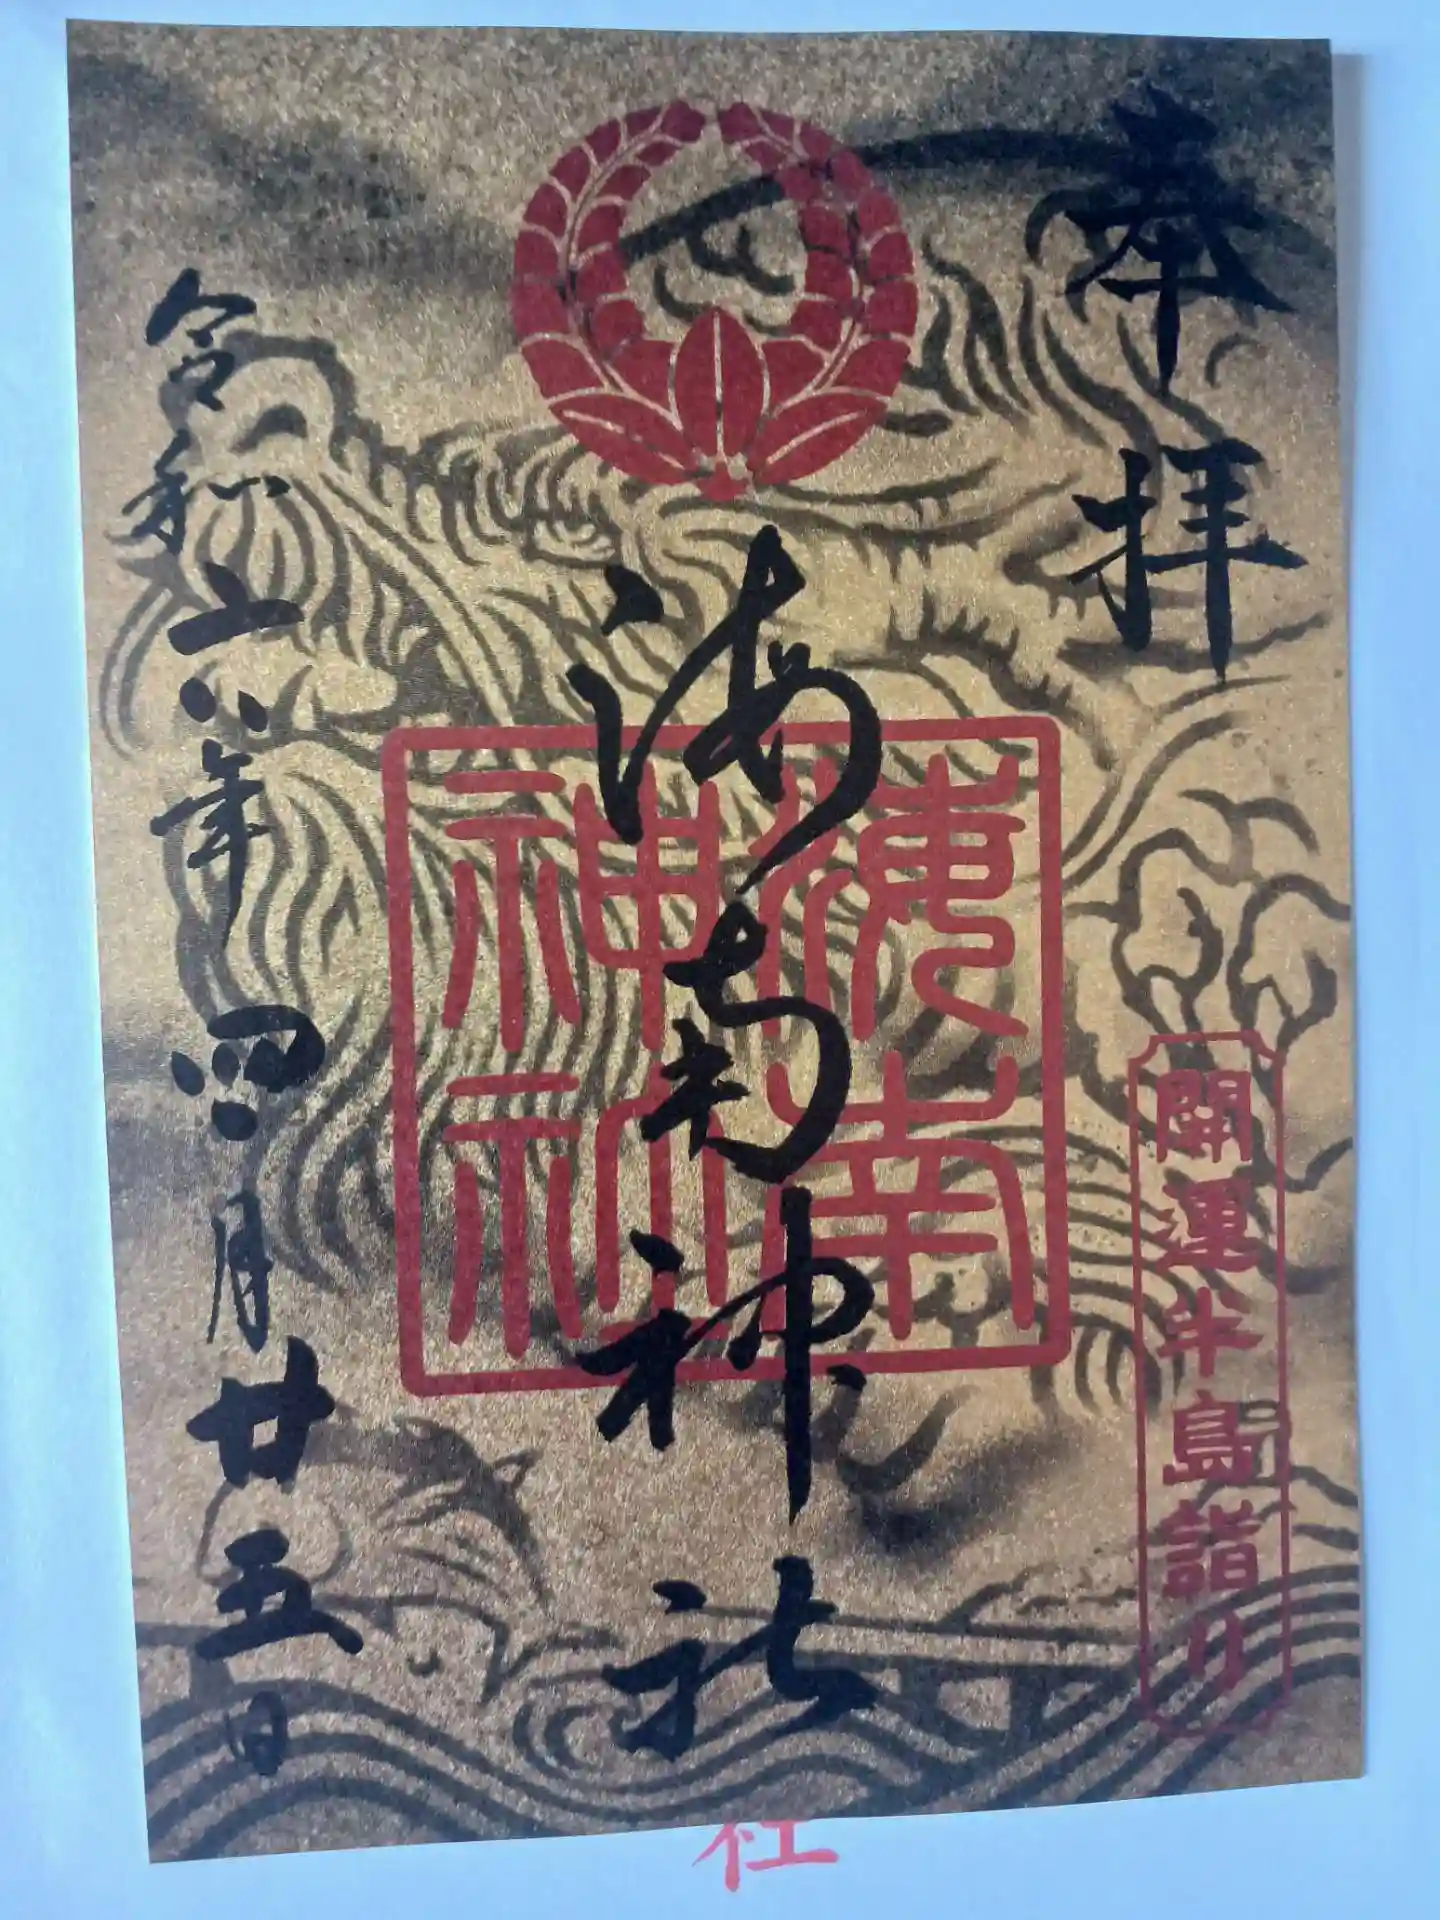 奉拝
開運半島詣り
海南神社
海南
神社
令和六年四月廿五日
社